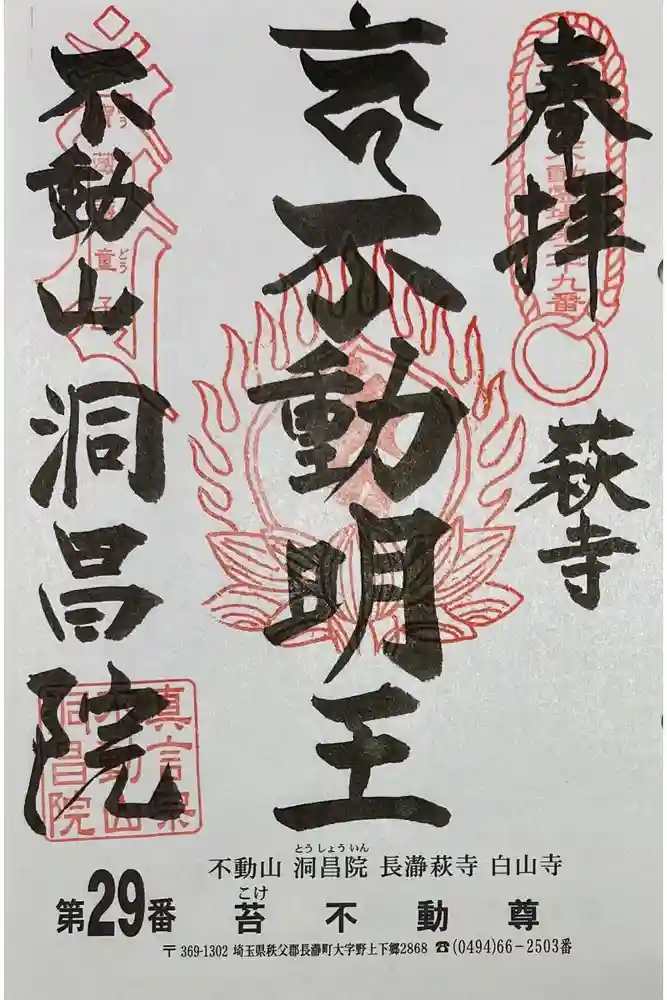 奉拝 萩寺
不動明王
不動山 洞昌院
童子
どう
九番
真言宗
不動山
洞昌院
とうしょういん
不動山 洞昌院 長瀞萩寺 白山寺
こけ
第29番 苔不動尊
〒369-1302 埼玉県秩父郡長瀞町大字野上下郷2868 ☎(0494)66-2503番